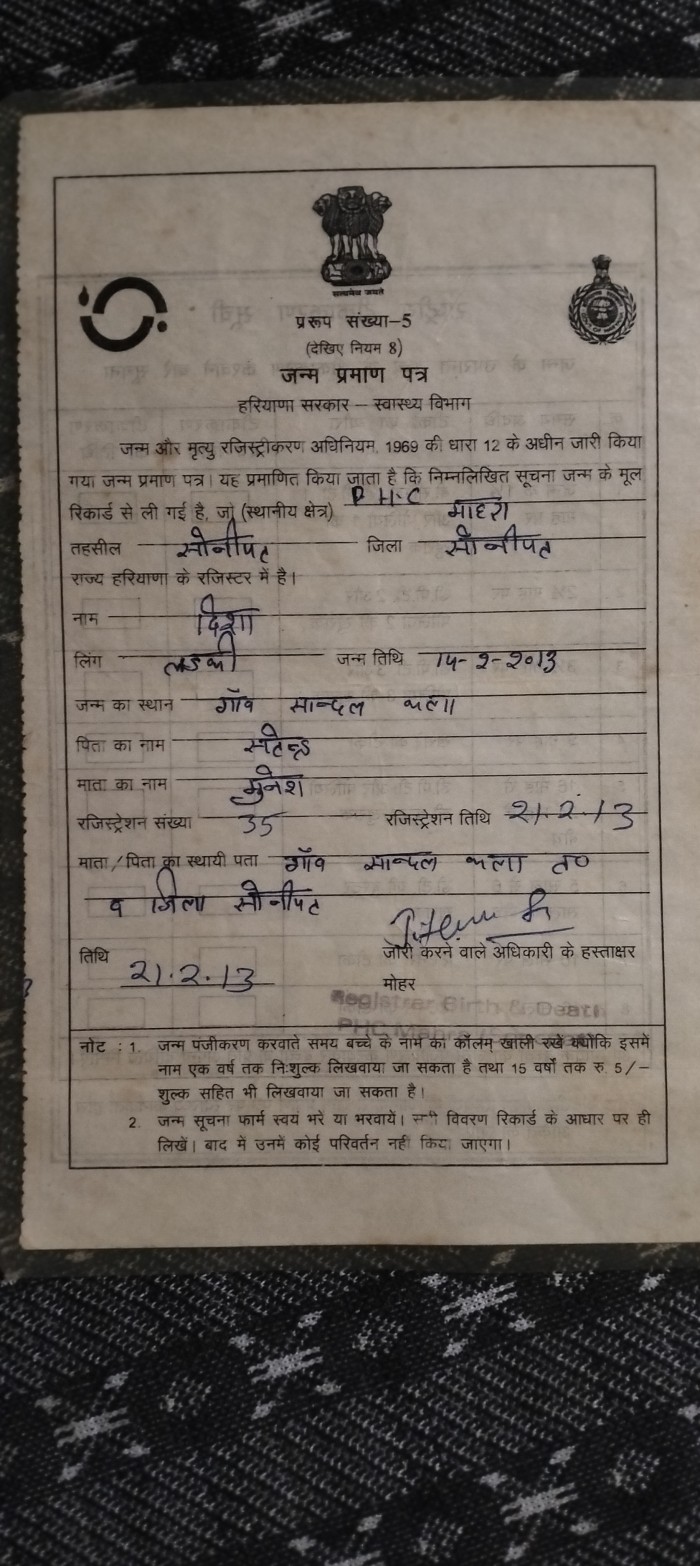 सत्यमेव जयते
प्ररूप संख्या–5
(देखिए नियम 8)
जन्म प्रमाण पत्र
हरियाणा सरकार – स्वास्थ्य विभाग
जन्म और मृत्यु रजिस्ट्रीकरण अधिनियम, 1969 की धारा 12 के अधीन जारी किया
गया जन्म प्रमाण पत्र। यह प्रमाणित किया जाता है कि निम्नलिखित सूचना जन्म के मूल
रिकार्ड से ली गई है, जो (स्थानीय क्षेत्र) P H.C
तहसील सोनीपत जिला सोनीपत
राज्य हरियाणा के रजिस्टर में है।
नाम दिशा
लिंग लडकी जन्म तिथि 14-2-2013
जन्म का स्थान गाँव सान्दल कलां
पिता का नाम
माता का नाम मुनेश
रजिस्ट्रेशन संख्या 35 रजिस्ट्रेशन तिथि 21.2.13
माता/पिता का स्थायी पता गाँव सान्दल कलां त०
व जिला सोनीपत
तिथि 21.2.13 जारी करने वाले अधिकारी के हस्ताक्षर
मोहर
नोट : 1. जन्म पंजीकरण करवाते समय बच्चे के नाम का कॉलम खाली रखें क्योंकि इसमें
नाम एक वर्ष तक निःशुल्क लिखवाया जा सकता है तथा 15 वर्षों तक रु. 5/–
शुल्क सहित भी लिखवाया जा सकता है।
2. जन्म सूचना फार्म स्वयं भरें या भरवायें। विवरण रिकार्ड के आधार पर ही
लिखें। बाद में उनमें कोई परिवर्तन नहीं किया जाएगा।